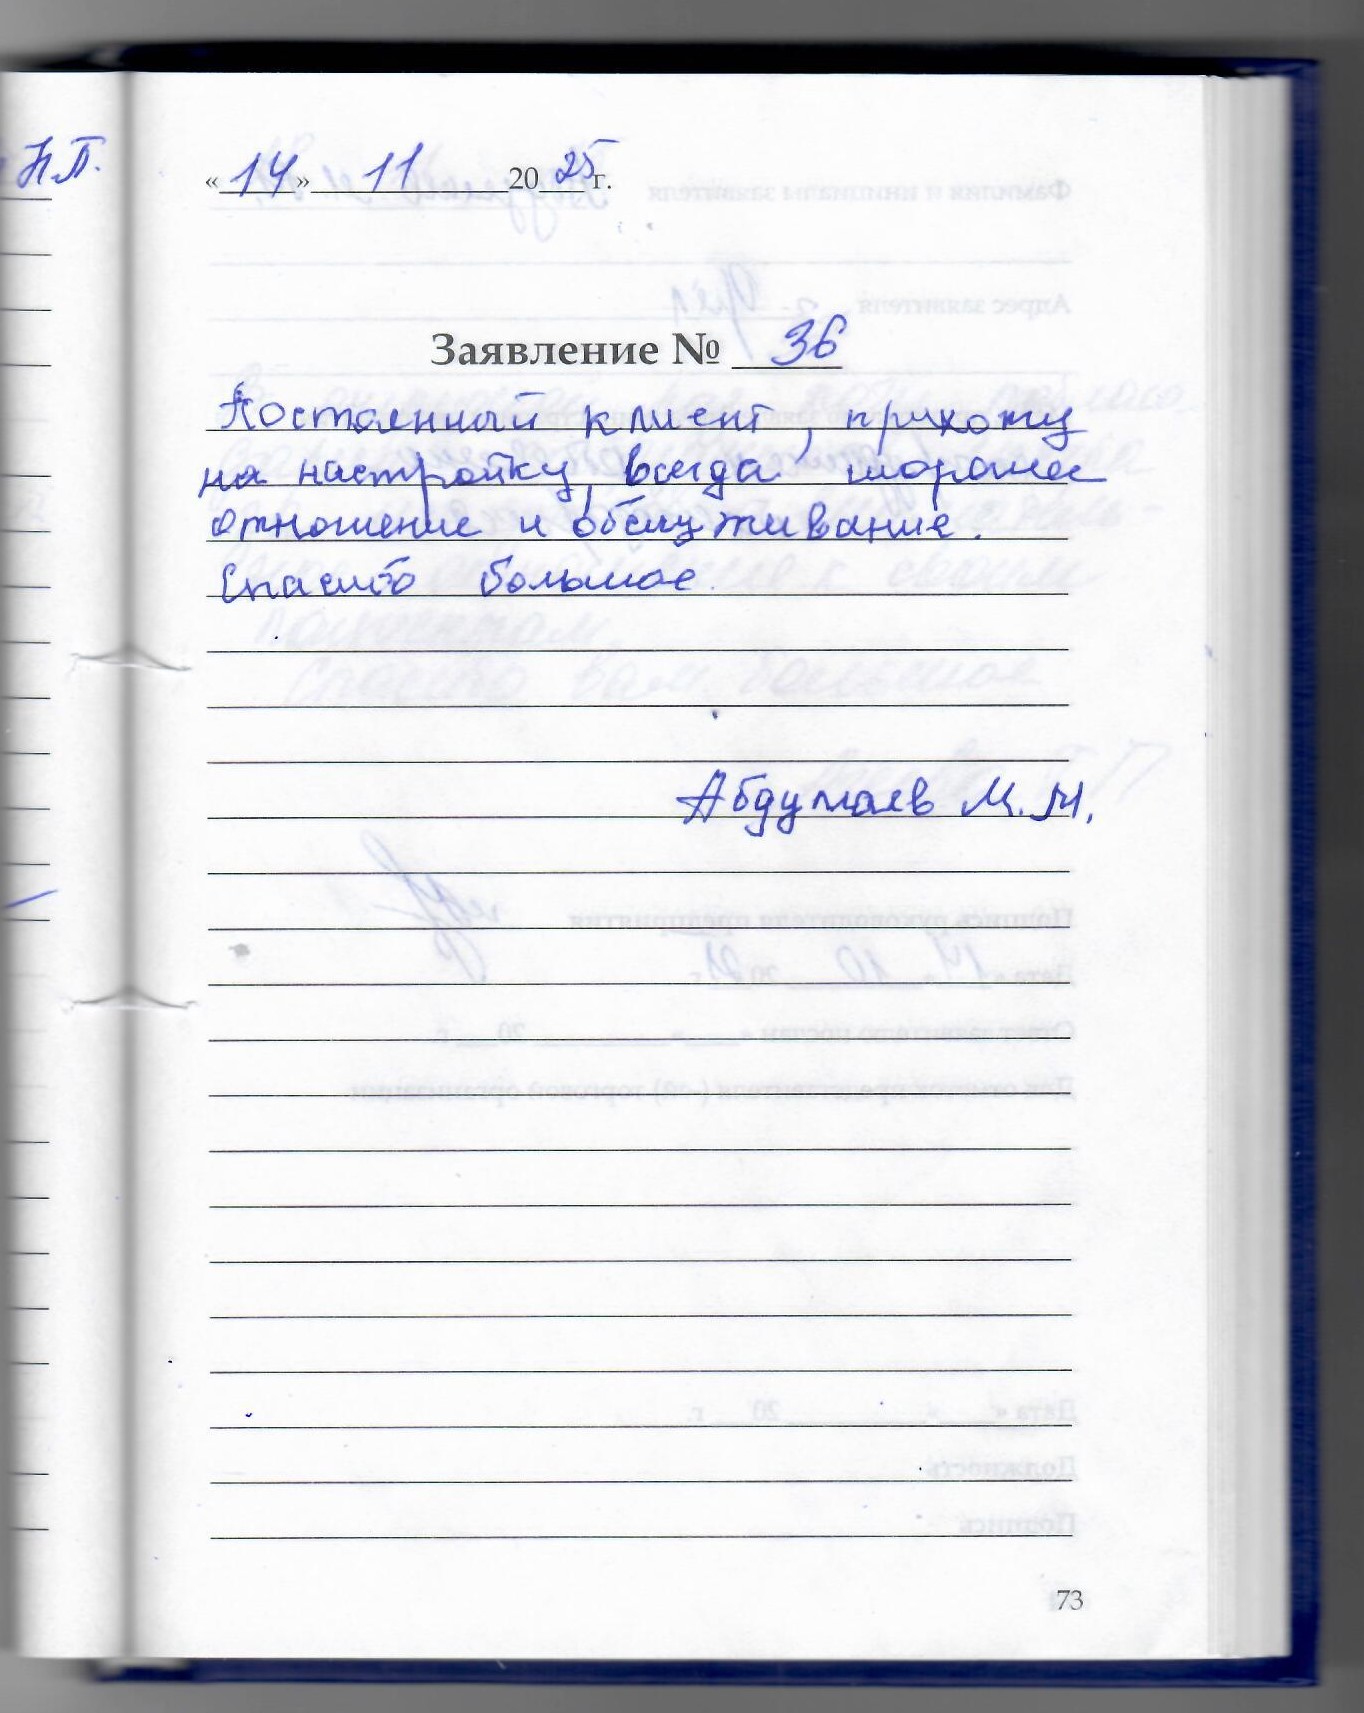 Н.П.
«14» 11 2025 г.
Заявление № 36
Постоянный клиент, прихожу
на настройку, всегда хорошее
отношение и обслуживание.
Спасибо большое.
М.М.
73